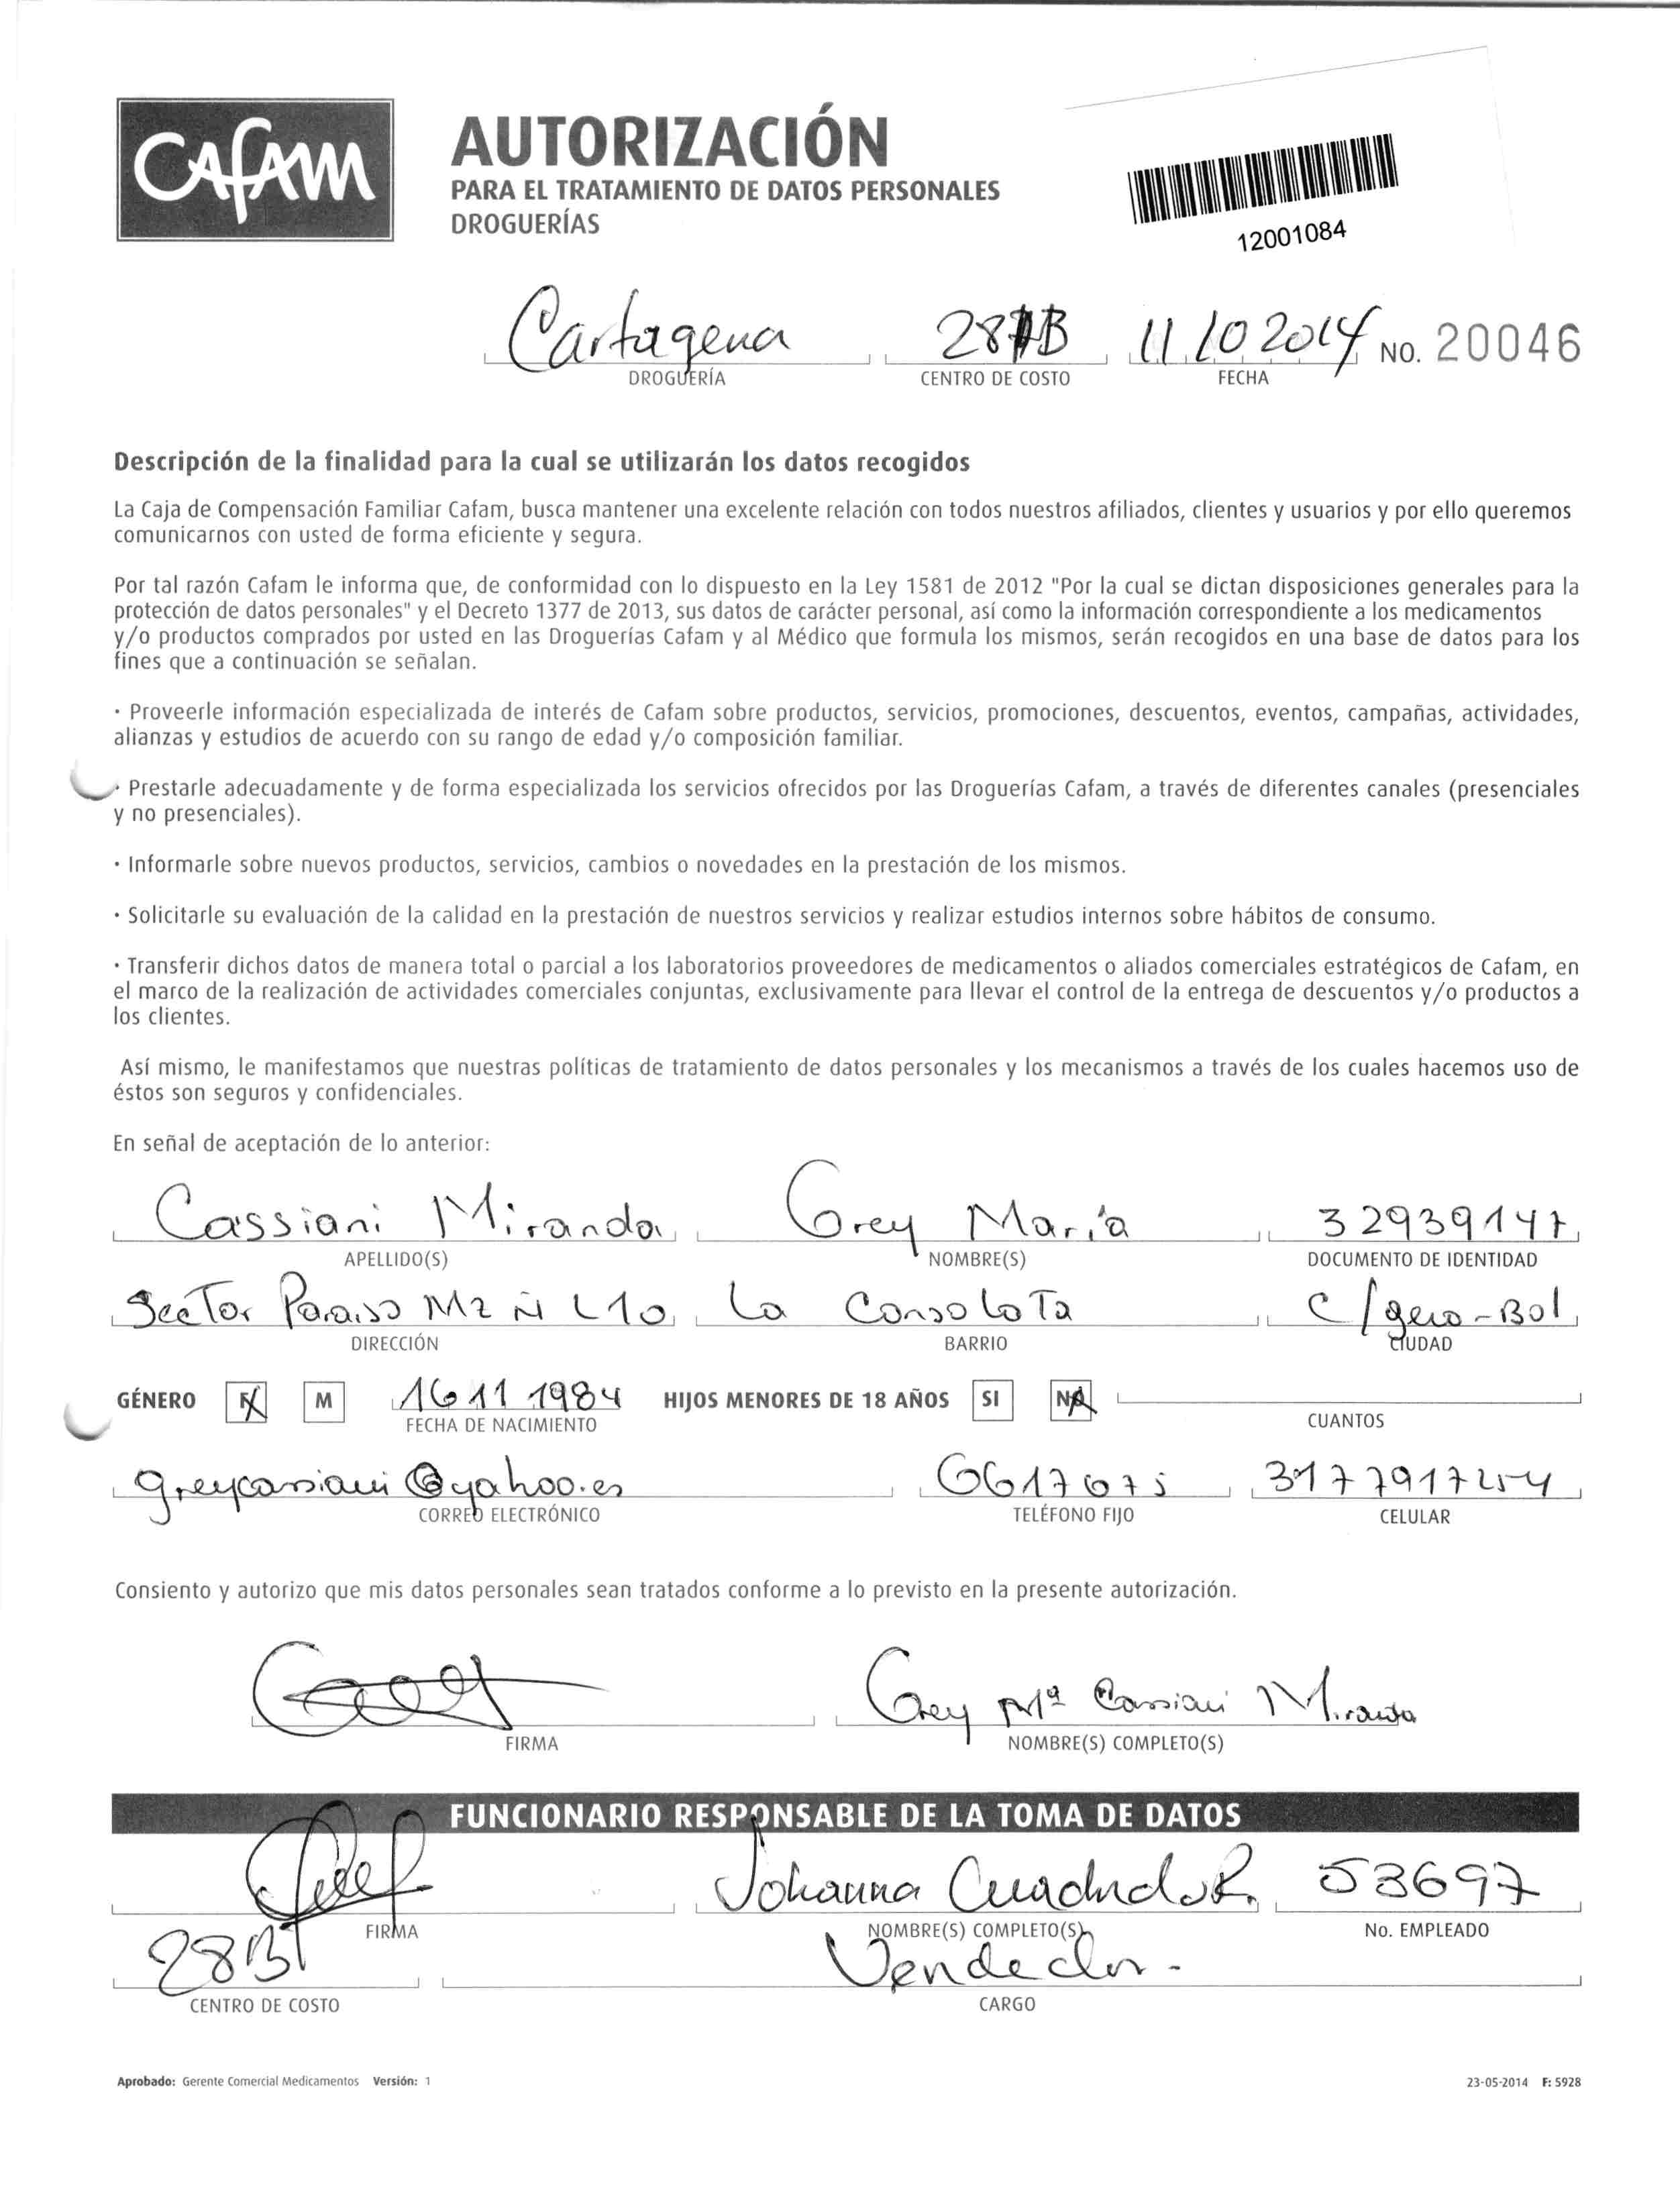 CAFAM
AUTORIZACIÓN
PARA EL TRATAMIENTO DE DATOS PERSONALES
DROGUERÍAS
12001084
Cartagena 28B 11 10 2014 NO. 20046
DROGUERÍA CENTRO DE COSTO FECHA
Descripción de la finalidad para la cual se utilizarán los datos recogidos
La Caja de Compensación Familiar Cafam, busca mantener una excelente relación con todos nuestros afiliados, clientes y usuarios y por ello queremos
comunicarnos con usted de forma eficiente y segura.
Por tal razón Cafam le informa que, de conformidad con lo dispuesto en la Ley 1581 de 2012 "Por la cual se dictan disposiciones generales para la
protección de datos personales" y el Decreto 1377 de 2013, sus datos de carácter personal, así como la información correspondiente a los medicamentos
y/o productos comprados por usted en las Droguerías Cafam y al Médico que formula los mismos, serán recogidos en una base de datos para los
fines que a continuación se señalan.
· Proveerle información especializada de interés de Cafam sobre productos, servicios, promociones, descuentos, eventos, campañas, actividades,
alianzas y estudios de acuerdo con su rango de edad y/o composición familiar.
· Prestarle adecuadamente y de forma especializada los servicios ofrecidos por las Droguerías Cafam, a través de diferentes canales (presenciales
y no presenciales).
· Informarle sobre nuevos productos, servicios, cambios o novedades en la prestación de los mismos.
· Solicitarle su evaluación de la calidad en la prestación de nuestros servicios y realizar estudios internos sobre hábitos de consumo.
· Transferir dichos datos de manera total o parcial a los laboratorios proveedores de medicamentos o aliados comerciales estratégicos de Cafam, en
el marco de la realización de actividades comerciales conjuntas, exclusivamente para llevar el control de la entrega de descuentos y/o productos a
los clientes.
Así mismo, le manifestamos que nuestras políticas de tratamiento de datos personales y los mecanismos a través de los cuales hacemos uso de
éstos son seguros y confidenciales.
En señal de aceptación de lo anterior:
Cassiani Miranda Grey María 32939147
APELLIDO(S) NOMBRE(S) DOCUMENTO DE IDENTIDAD
Sector Paraiso Mz Ñ L10 La Consolata C/gena-Bol
DIRECCIÓN BARRIO CIUDAD
GÉNERO F M 16 11 1984 HIJOS MENORES DE 18 AÑOS SI NO
FECHA DE NACIMIENTO CUANTOS
greycassiani@yahoo.es 6617675 3177917254
CORREO ELECTRÓNICO TELÉFONO FIJO CELULAR
Consiento y autorizo que mis datos personales sean tratados conforme a lo previsto en la presente autorización.
Grey Mª Cassiani Miranda
FIRMA NOMBRE(S) COMPLETO(S)
FUNCIONARIO RESPONSABLE DE LA TOMA DE DATOS
Johanna Cuadrado R. 53697
FIRMA NOMBRE(S) COMPLETO(S) No. EMPLEADO
28B Vendedor-
CENTRO DE COSTO CARGO
Aprobado: Gerente Comercial Medicamentos Versión: 1 23-05-2014 F: 5928